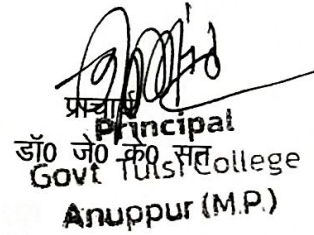 प्राचार्य
Principal
डॉ0 जे0 के0 संत
Govt Tulsi College
Anuppur (M.P.)